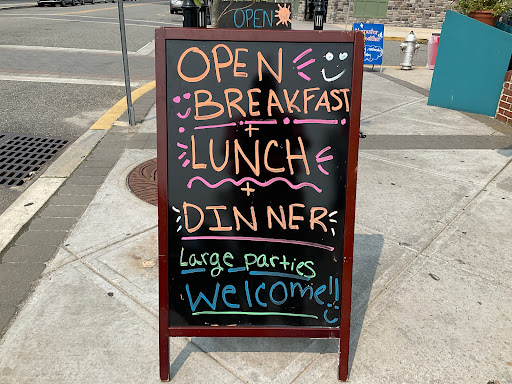 OPEN
OPEN
BREAKFAST
+
LUNCH
+
DINNER
Large parties
Welcome!!